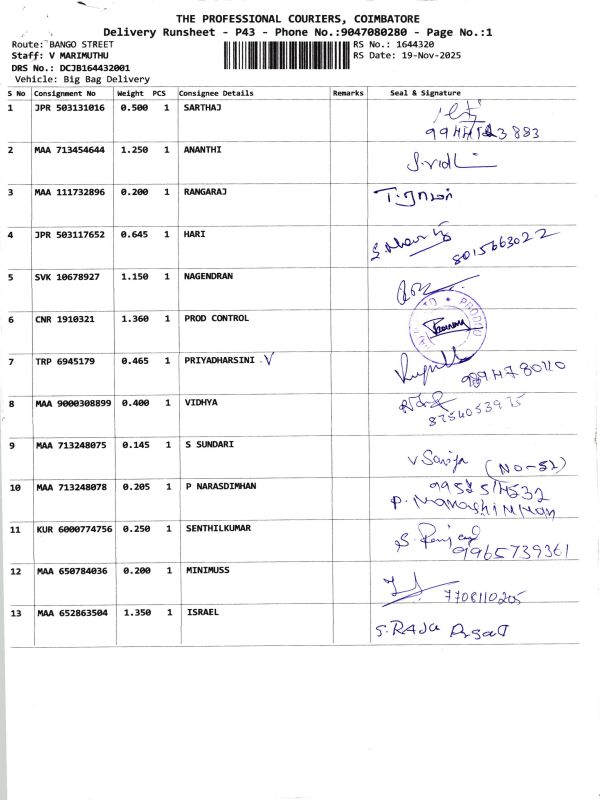 THE PROFESSIONAL COURIERS, COIMBATORE
Delivery Runsheet - P43 - Phone No.:9047080280 - Page No.:1
Route: BANGO STREET RS No.: 1644320
Staff: V MARIMUTHU RS Date: 19-Nov-2025
DRS No.: DCJB164432001
Vehicle: Big Bag Delivery
S No Consignment No Weight PCS Consignee Details Remarks Seal & Signature
1 JPR 503131016 0.500 1 SARTHAJ
2 MAA 713454644 1.250 1 ANANTHI
S.vidh
3 MAA 111732896 0.200 1 RANGARAJ
4 JPR 503117652 0.645 1 HARI
8015663022
5 SVK 10678927 1.150 1 NAGENDRAN
6 CNR 1910321 1.360 1 PROD CONTROL
7 TRP 6945179 0.465 1 PRIYADHARSINI .V
8 MAA 9000308899 0.400 1 VIDHYA
9 MAA 713248075 0.145 1 S SUNDARI
(NO-52)
10 MAA 713248078 0.205 1 P NARASDIMHAN
11 KUR 6000774756 0.250 1 SENTHILKUMAR
9965739361
12 MAA 650784036 0.200 1 MINIMUSS
7708110205
13 MAA 652863504 1.350 1 ISRAEL
S.RAJA